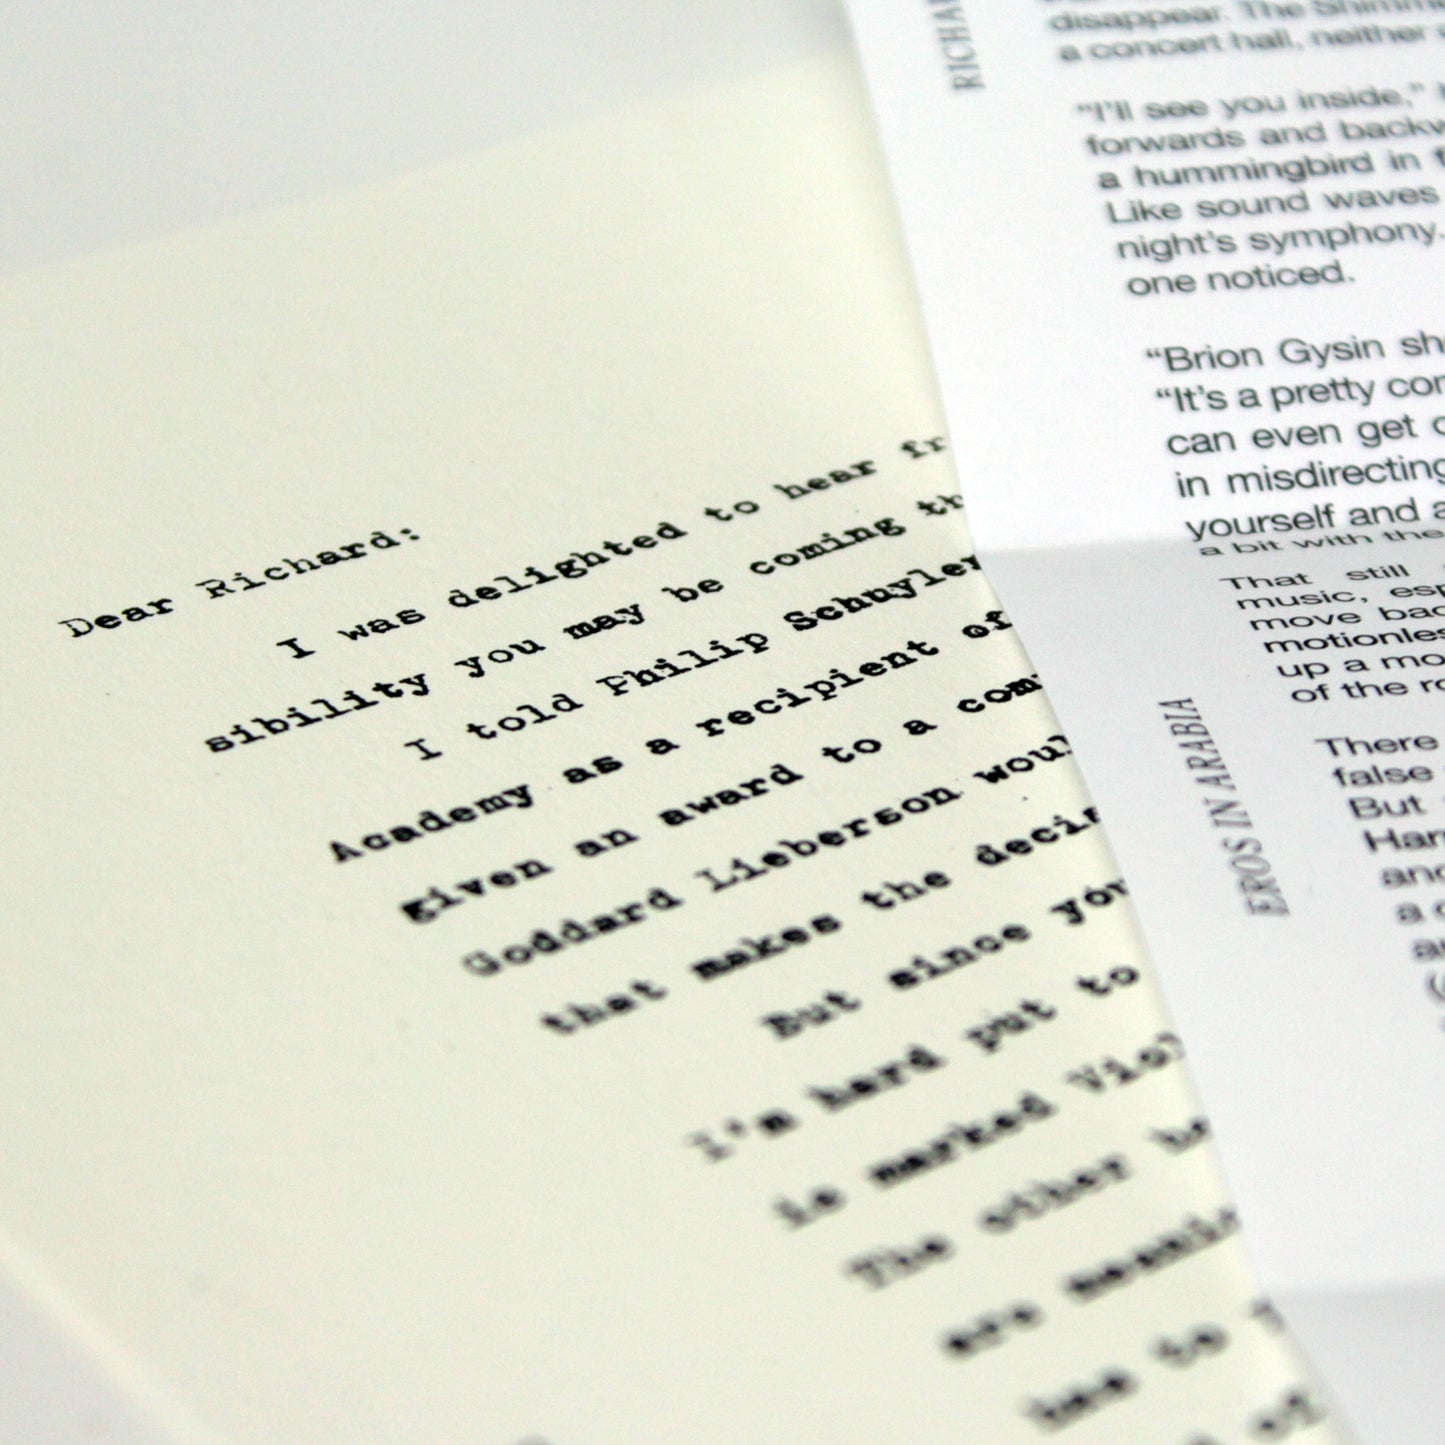 Dear Richard:
I was delighted to hear fr
sibility you may be coming th
I told Philip Schuyler
Academy as a recipient of
given an award to a com
Goddard Lieberson woul
that makes the decis
But since you
I'm hard put to
is marked Viol
The other he
are meanin
has to
of
RICHAR
disappear. The Shimme
a concert hall, neither
"I'll see you inside,"
forwards and backw
a hummingbird in f
Like sound waves
night's symphony.
one noticed.
"Brion Gysin sh
"It's a pretty cor
can even get
in misdirecting
yourself and a
a bit with the
That still
music, esp
move bac
motionles
up a mo
of the ro
EROS IN ARABIA
There
false
But
Har
and
a